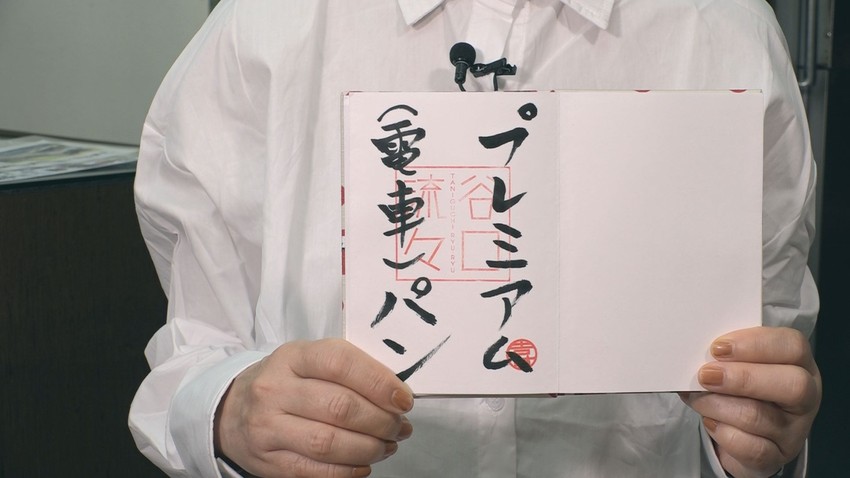 プレミアム
(電車)パン
谷口
流々
TANIGUCHI RYU RYU